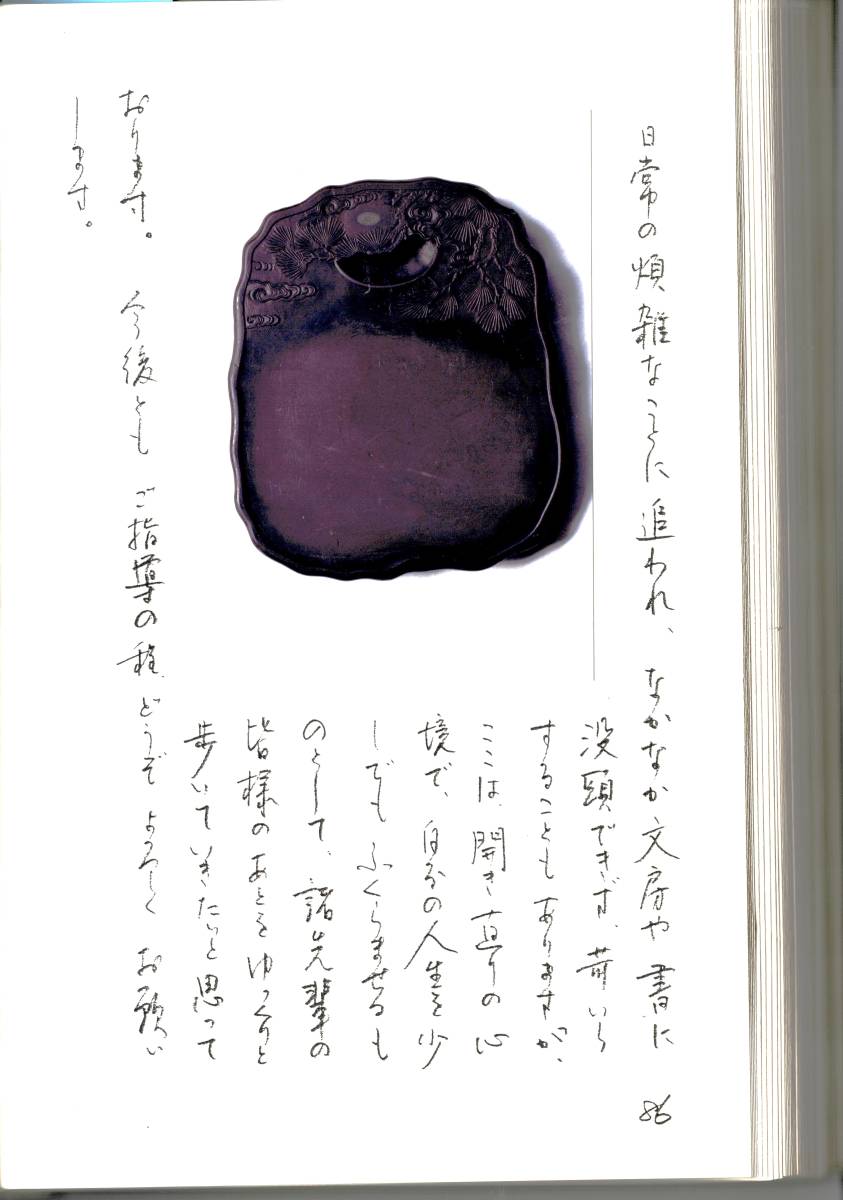 日常の煩雑なことに追われ、なかなか文房や書に
没頭できず、苛いら
することもありますが、
ここは、開き直りの心
境で、自分の人生を少
しでもふくらませるも
のとして、諸先輩の
皆様のあとをゆっくりと
歩いていきたいと思って
おります。今後ともご指導の程、どうぞよろしくお願い
します。
86